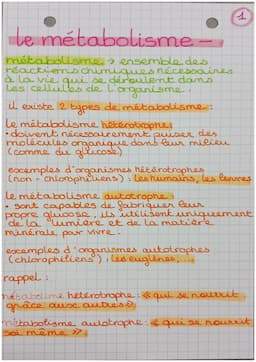 1
le métabolisme -
métabolisme → ensemble des
réactions chimiques nécessaires
à la vie qui se déroulent dans
les cellules de l'organisme
il existe 2 types de métabolisme :
le métabolisme hétérotrophe
• doivent nécessairement puiser des
molécules organique dans leur milieu
(comme du glucose)
exemples d'organismes hétérotrophes
(non-chlorophiliens) : les humains, les levures
le métabolisme autotrophe
• sont capables de fabriquer leur
propre glucose, ils utilisent uniquement
de la lumière et de la matière
minérale pour vivre.
exemples d'organismes autotrophes
(chlorophiliens) : les euglènes, ...
rappel :
métabolisme hétérotrophe : « qui se nourrit
grâce aux autres »
métabolisme autotrophe : « qui se nourrit
soi même »